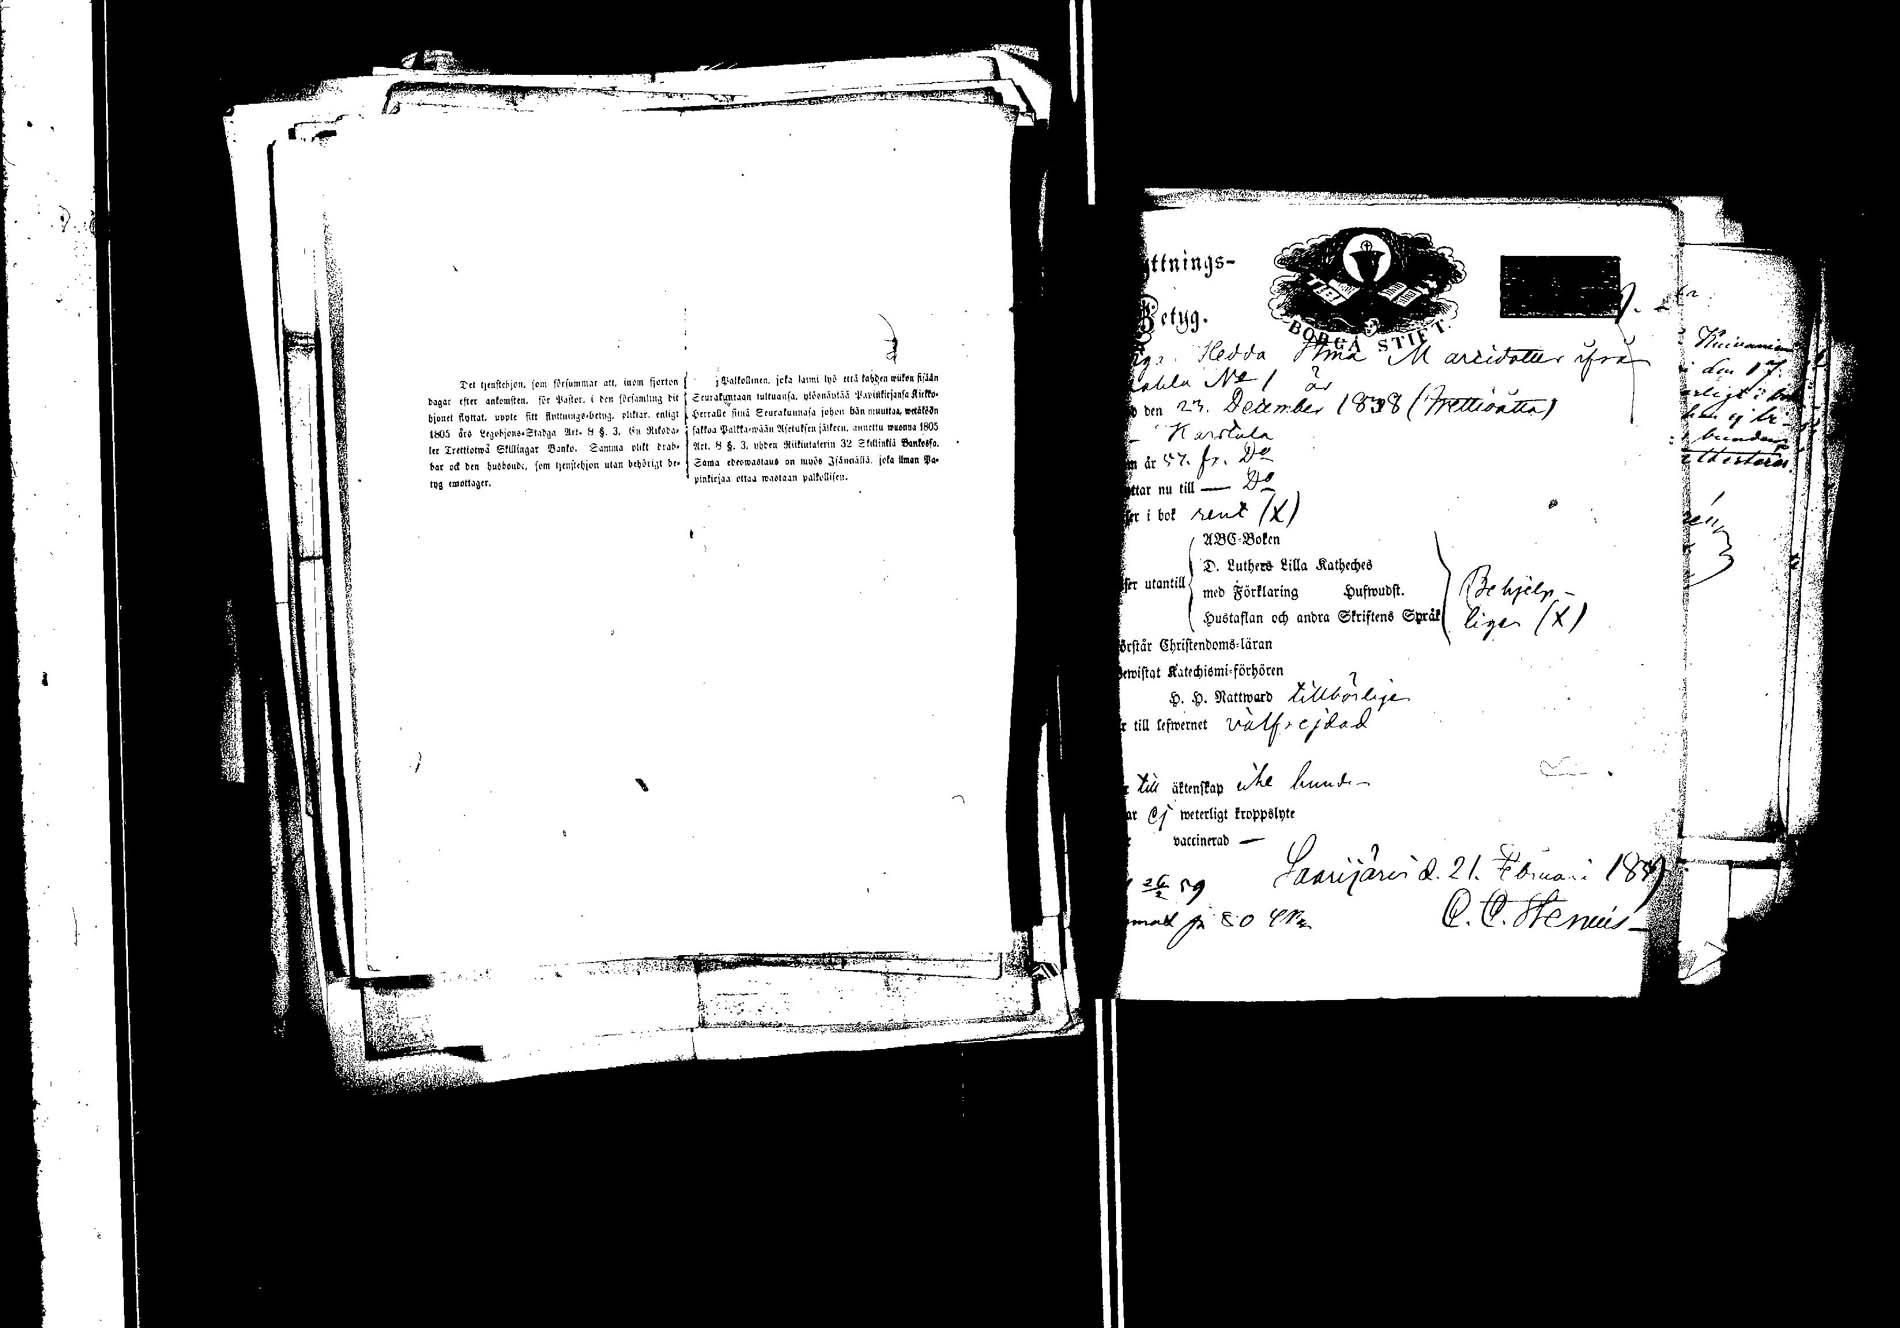 Det tjenstehjon, som försummar att, inom fjorton
dagar efter ankomsten, för Pastor, i den församling dit
hjonet flyttat, uppte sitt flyttnings-betyg, pliktar, enligt
1805 års Legohjons-Stadga Art. 8 §. 3. En Riksda-
ler Trettiotwå Skillingar Banko. Samma plikt drab-
bar ock den husbonde, som tjenstehjon utan behörigt be-
tyg emottager.
Palkollinen, joka laimi lyö että kahden wiikon sisään
Seurakuntaan tultuansa, ylösnäyttää Papinkirjansa Kirkko-
Herralle siinä Seurakunnasa johon hän muuttaa, wetäköön
sakkoa Palkka-wään Asetuksen jälkeen, annettu wuonna 1805
Art. 8 §. 3, yhden Riikintalerin 32 Skillinkiä Bankossa.
Sama edeswastaus on myös Isännällä, joka ilman Pa-
pinkirjaa ottaa wastaan palkollisen.
ttnings-
Betyg.
BORGÅ STIFT.
Hedda Marcidotter ifrån
No 1 är
den 23. December 1838 (Trettioåtta)
Karstula
år 57. fr. Do
ttar nu till — Do
ser i bok rent (X)
ABC-Boken
D. Luthers Lilla Katheches
ser utantill
med Förklaring Hufwudst.
Hustaflan och andra Skriftens Språk
Behjelp-
ligen (X)
örstår Christendoms-läran
bewistat Katechismi-förhören
H. H. Nattward tillbörligen
r till lefwernet välfrejdad
r till äktenskap icke bunden
ar ej weterligt kroppslyte
vaccinerad —
Saarijärvi d. 21. Februari 1859
26/2 59
80
C. C. Stenius